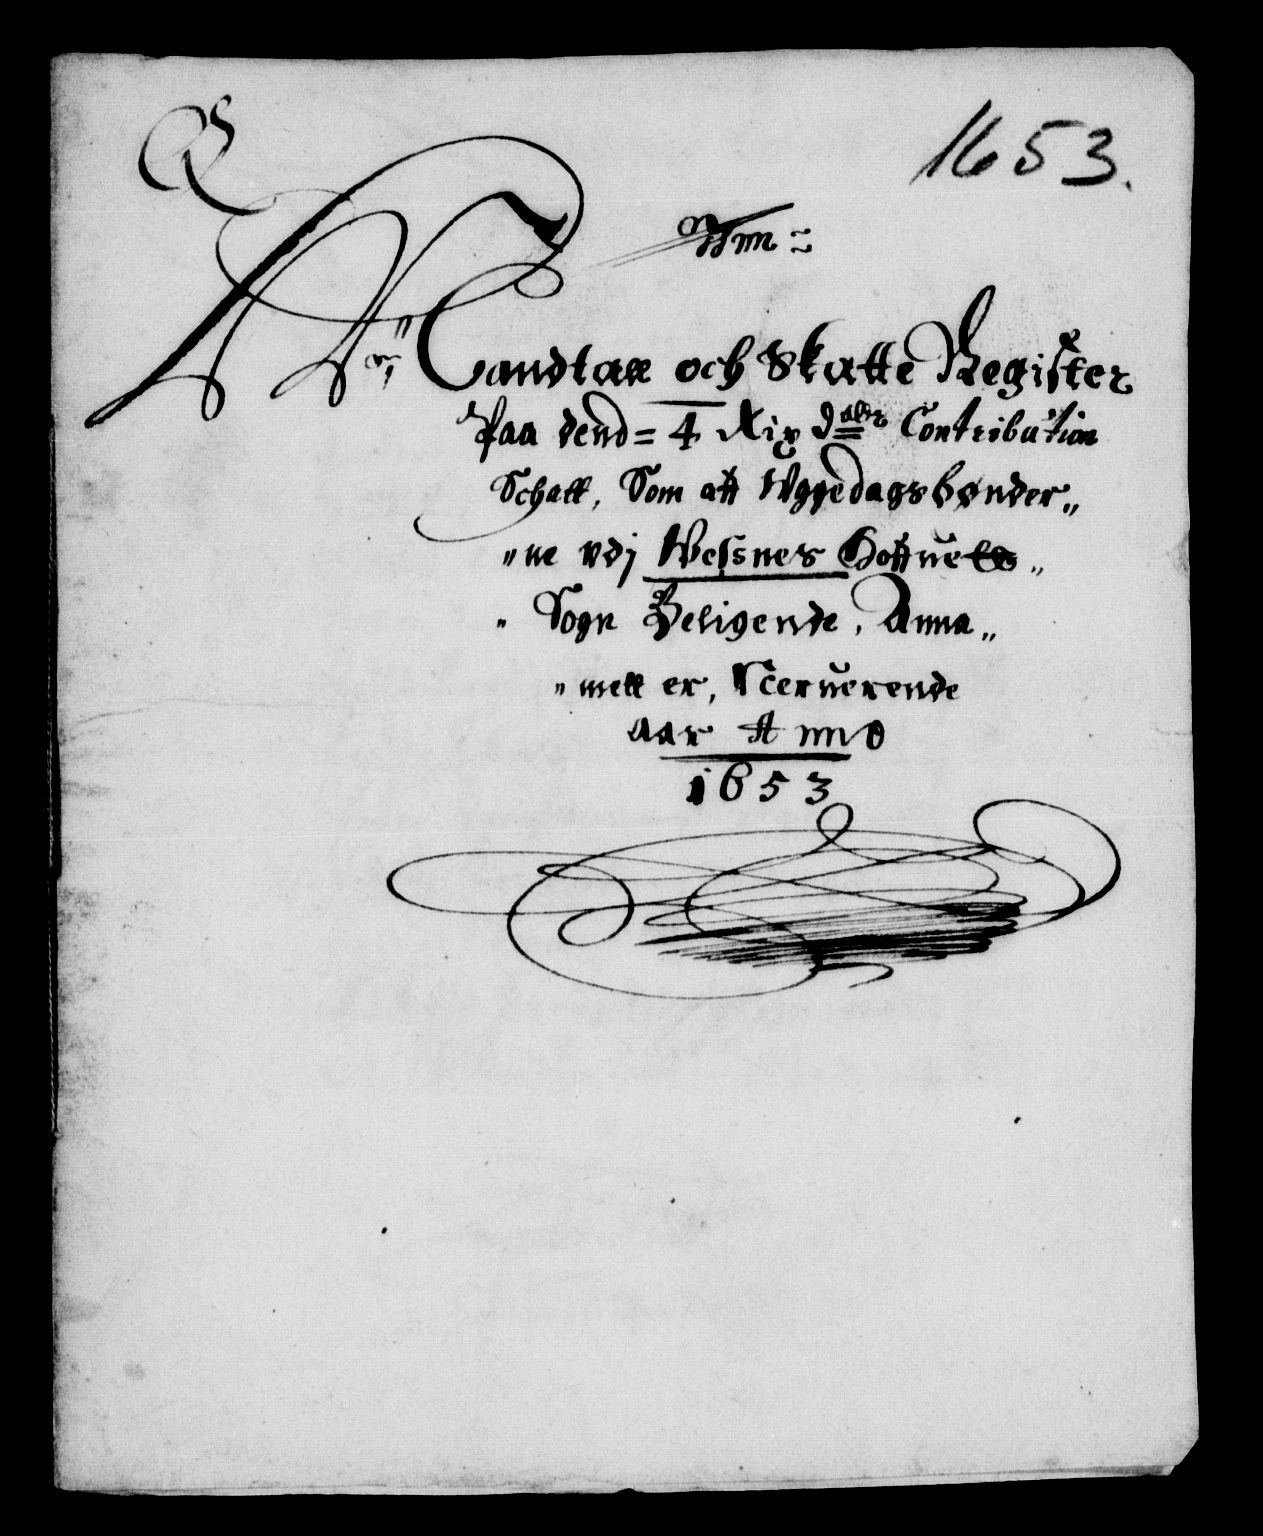 1653.
Mandtall och Skatte Register
Paa dend= 4 Rix daler Contribution
Schatt, Som aff Wggedagsbønder„
„ne vdj Wessnes Hoffue
„ Sogn Beligende, Anna„
„mett er, Neruerende
aar Anno
1653